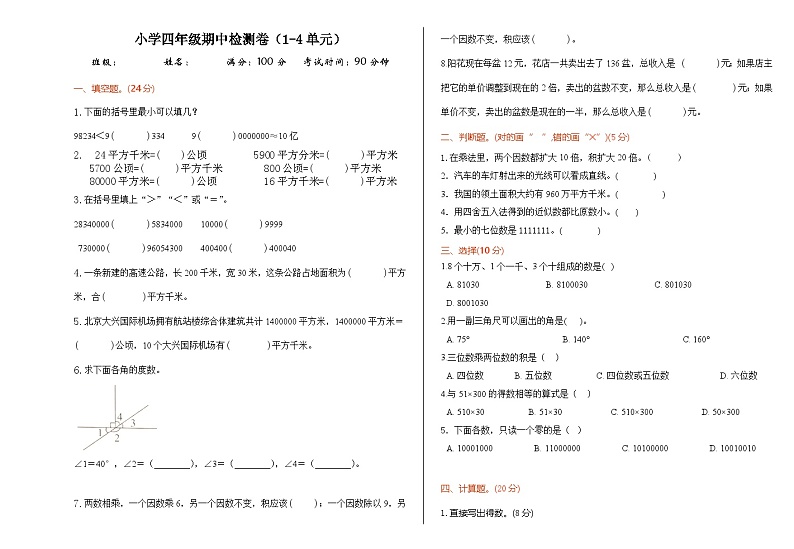 小学四年级期中检测卷（1-4单元）
班级： 姓名： 满分：100分 考试时间：90分钟
一、填空题。(24分)
1.下面的括号里最小可以填几？
98234＜9( )334 9( )0000000≈10亿
2. 24平方千米=( )公顷 5900平方分米=( )平方米
5700公顷=( )平方千米 800公顷=( )平方米
80000平方米=( )公顷 16平方千米=( )平方米
3.在括号里填上“＞”“＜”或“＝”。
28340000( )5834000 10000( )9999
730000( )96054300 400400( )400040
4.一条新建的高速公路，长200千米，宽30米，这条公路占地面积为( )平方
米，合( )平方千米。
5.北京大兴国际机场拥有航站楼综合体建筑共计1400000平方米，1400000平方米＝
( )公顷，10个大兴国际机场有( )平方千米。
6.求下面各角的度数。
4
1 3
2
∠1=40°，∠2=(________)，∠3=(________)，∠4=(________)。
7.两数相乘，一个因数乘6，另一个因数不变，积应该( )；一个因数除以9，另
一个因数不变，积应该( )。
8.阳花现在每盆12元，花店一共卖出去了136盆，总收入是( )元；如果店主
把它的单价调整到现在的2倍，卖出的盆数不变，那么总收入是( )元；如果
单价不变，卖出的盆数是现在的一半，那么总收入是( )元。
二、判断题。(对的画“ ”,错的画“×”)(5分)
1.在乘法里，两个因数都扩大10倍，积扩大20倍。( )
2. 汽车的车灯射出来的光线可以看成直线。( )
3. 我国的领土面积大约有960万平方千米。( )
4. 用四舍五入法得到的近似数都比原数小。( )
5. 最小的七位数是1111111。( )
三、选择(10分)
1.8个十万、1个一千、3个十组成的数是( )
A. 81030 B. 8100030 C. 801030
D. 8001030
2.用一副三角尺可以画出的角是( )。
A. 75° B. 140° C. 160°
3.三位数乘两位数的积是( )
A. 四位数 B. 五位数 C. 四位数或五位数 D. 六位数
4.与51×300的得数相等的算式是( )
A. 510×30 B. 51×30 C. 510×300 D. 50×300
5. 下面各数，只读一个零的是( )
A. 10001000 B. 11000000 C. 10100000 D. 10010010
四、计算题。(20分)
1.直接写出得数。(8分)